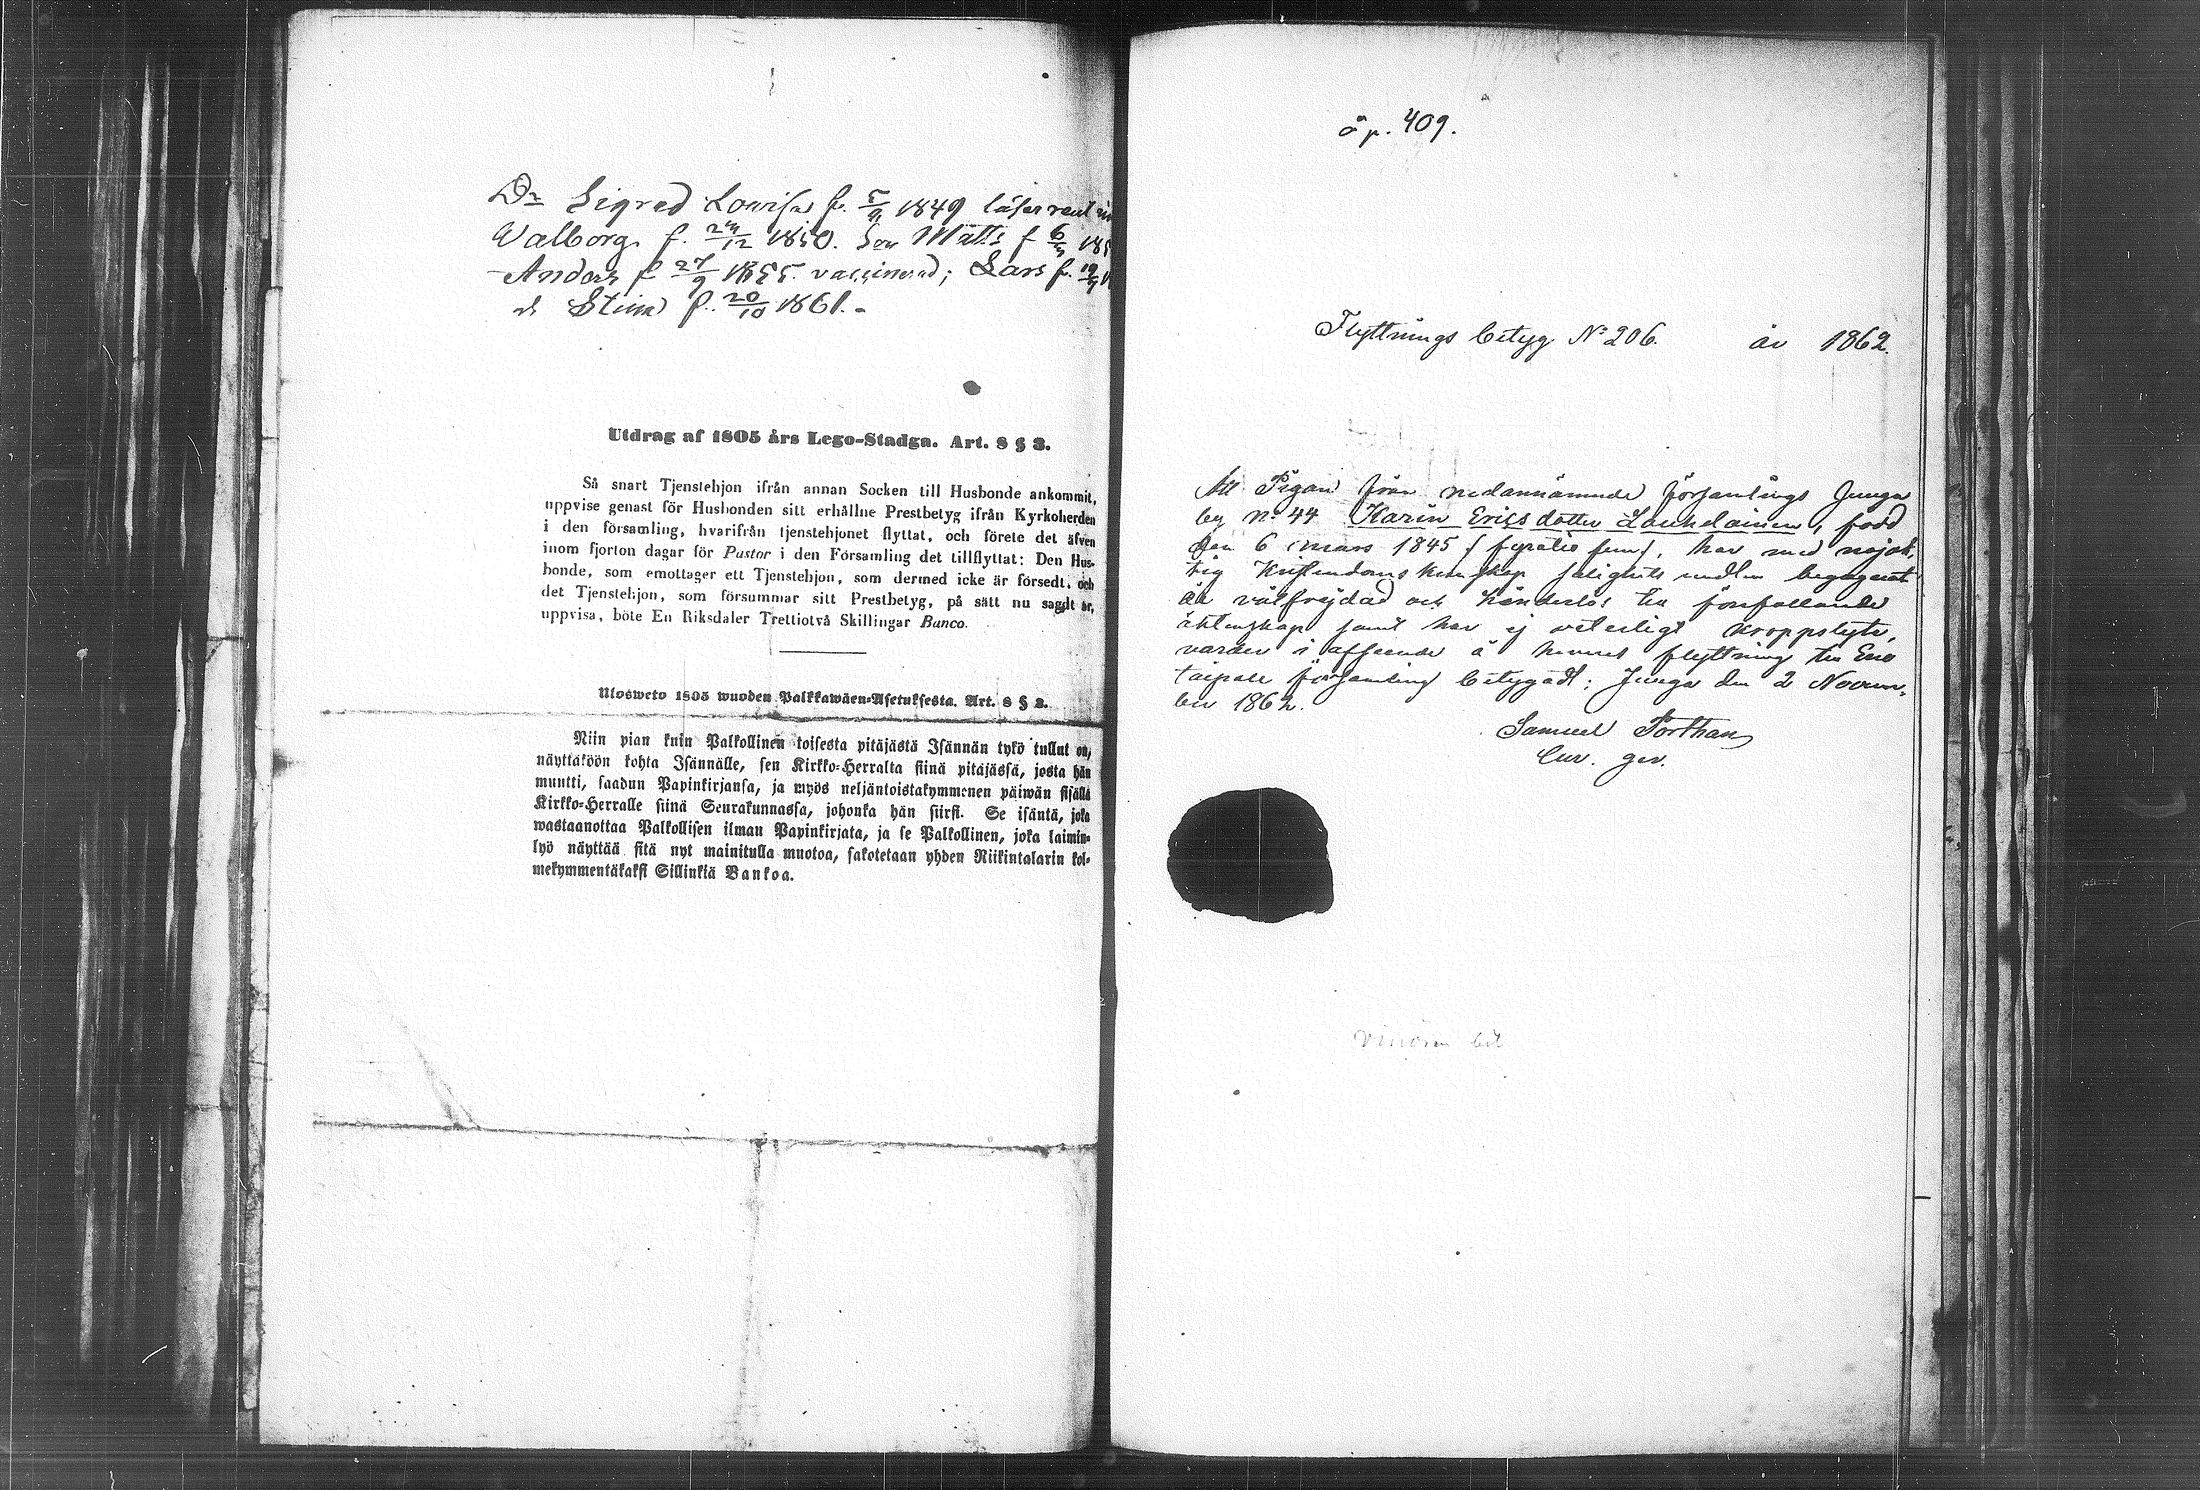 Dr Sigred Lowisa f. 5/9 1849 läser rent
Walborg f. 24/12 1850. Son Matts f 6/
Anders f 27/9 1855. vaccinerad; Lars f. 19/
d Stina f. 20/10 1861.-
Utdrag af 1805 års Lego-Stadga. Art. 8 § 3.
Så snart Tjenstehjon ifrån annan Socken till Husbonde ankommit,
uppvise genast för Husbonden sitt erhållne Prestbetyg ifrån Kyrkoherden
i den församling, hvarifrån tjenstehjonet flyttat, och förete det äfven
inom fjorton dagar för Pastor i den Församling det tillflyttat: Den Hus-
bonde, som emottager ett Tjenstehjon, som dermed icke är försedt, och
det Tjenstehjon, som försummar sitt Prestbetyg, på sätt nu sagdt är,
uppvisa, böte En Riksdaler Trettiotvå Skillingar Banco.
Ulosweto 1805 wuoden Palkkawäen-Asetuksesta. Art. 8 § 3.
Niin pian kuin Palkollinen toisesta pitäjästä Isännän tykö tullut on,
näyttäköön kohta Isännälle, sen Kirkko-Herralta siinä pitäjässä, josta hän
muutti, saadun Papinkirjansa, ja myös neljäntoistakymmenen päiwän sisällä
Kirkko-Herralle siinä Seurakunnassa, johonka hän siirsi. Se isäntä, joka
wastaanottaa Palkollisen ilman Papinkirjata, ja se Palkollinen, joka laimin-
lyö näyttää sitä nyt mainitulla muotoa, sakotetaan yhden Riikintalarin kol-
mekymmentäkaksi Sillinkiä Bankoa.
å p. 409.
Flyttnings betyg No 206. år 1862.
Att Pigan från nedannämnde församlings Junga
by No 44 Karin Ericsdotter Laukelainen, född
den 6 mars 1845 / fyratio fem /, har med nöjak-
tig Kristendoms kunskap salighets medlen begagnat
är välfrejdad och hinderlös till förefallande
äktenskap samt har ej veterligt kroppslyte,
varder i afseende å hennes flyttning till Eno
taipale församling betygadt; Junga den 2 Novem-
ber 1862.
Samuel Porthan
Cur. ger.